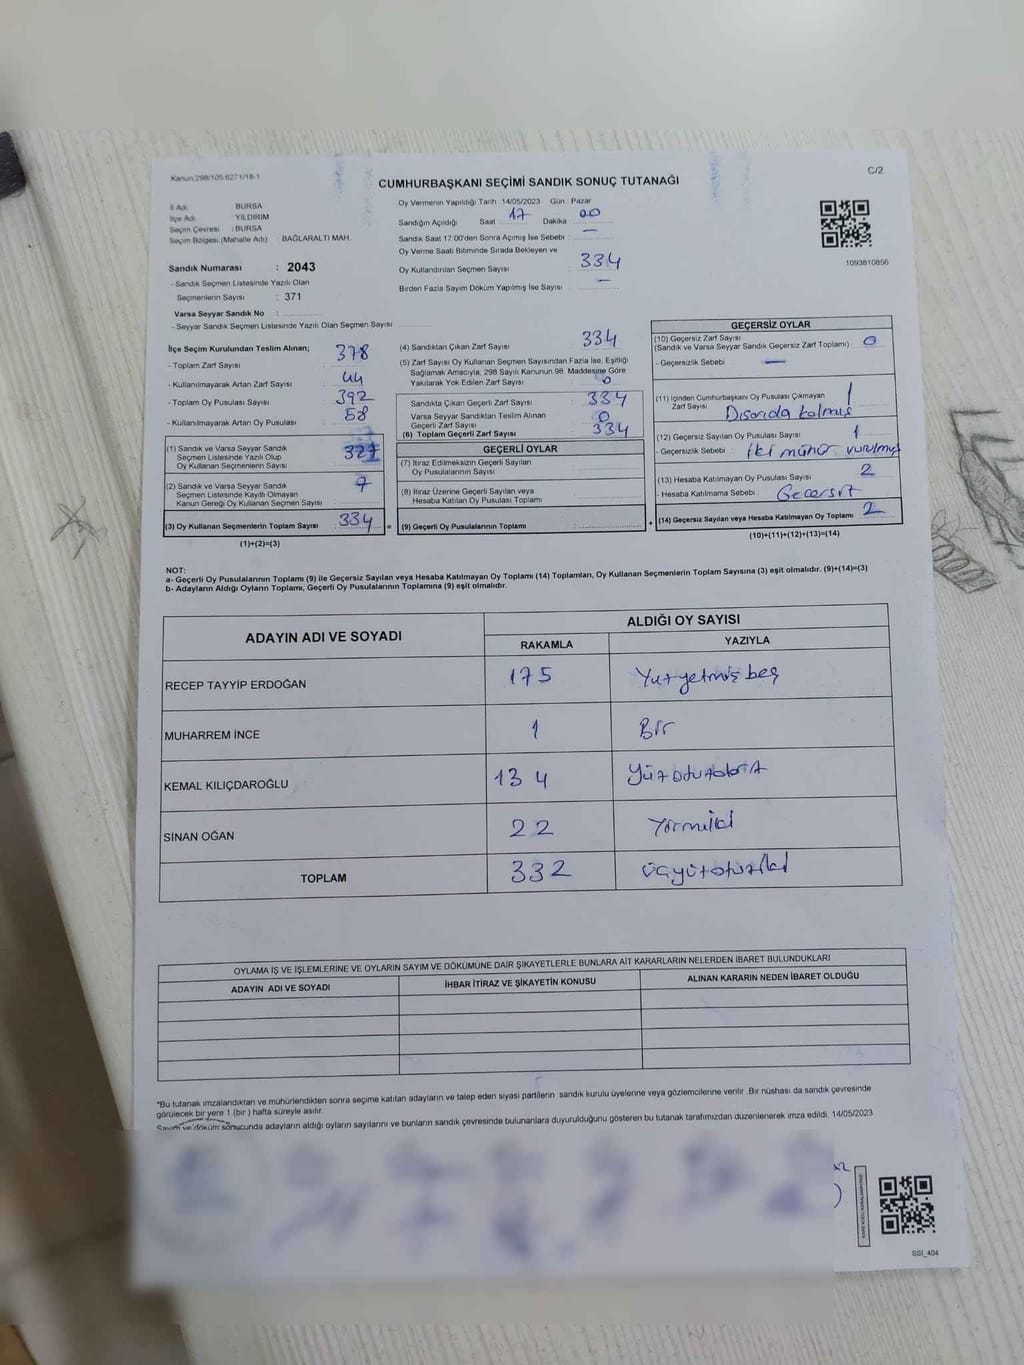 Kanun:298/105;6271/18-1
C/2
CUMHURBAŞKANI SEÇİMİ SANDIK SONUÇ TUTANAĞI
İl Adı : BURSA
İlçe Adı : YILDIRIM
Seçim Çevresi : BURSA
Seçim Bölgesi (Mahalle Adı) : BAĞLARALTI MAH.
Sandık Numarası : 2043
- Sandık Seçmen Listesinde Yazılı Olan
Seçmenlerin Sayısı : 371
Varsa Seyyar Sandık No :
- Seyyar Sandık Seçmen Listesinde Yazılı Olan Seçmen Sayısı
Oy Vermenin Yapıldığı Tarih 14/05/2023 Gün : Pazar
Sandığın Açıldığı Saat : 17 Dakika : 00
Sandık Saat 17:00'den Sonra Açımış İse Sebebi : —
Oy Verme Saati Bitiminde Sırada Bekleyen ve
Oy Kullandırılan Seçmen Sayısı : 334
Birden Fazla Sayım Döküm Yapılmış İse Sayısı : —
1093810856
İlçe Seçim Kurulundan Teslim Alınan;
- Toplam Zarf Sayısı : 378
- Kullanılmayarak Artan Zarf Sayısı : 44
- Toplam Oy Pusulası Sayısı : 392
- Kullanılmayarak Artan Oy Pusulası : 58
(1) Sandık ve Varsa Seyyar Sandık
Seçmen Listesinde Yazılı Olup
Oy Kullanan Seçmenlerin Sayısı : 327
(2) Sandık ve Varsa Seyyar Sandık
Seçmen Listesinde Kayıtlı Olmayan
Kanun Gereği Oy Kullanan Seçmen Sayısı : 7
(3) Oy Kullanan Seçmenlerin Toplam Sayısı : 334
(1)+(2)=(3)
(4) Sandıktan Çıkan Zarf Sayısı : 334
(5) Zarf Sayısı Oy Kullanan Seçmen Sayısından Fazla İse, Eşitliği
Sağlamak Amacıyla, 298 Sayılı Kanunun 98. Maddesine Göre
Yakılarak Yok Edilen Zarf Sayısı : 0
Sandıkta Çıkan Geçerli Zarf Sayısı : 334
Varsa Seyyar Sandıktan Teslim Alınan
Geçerli Zarf Sayısı : 0
(6) Toplam Geçerli Zarf Sayısı : 334
GEÇERLİ OYLAR
(7) İtiraz Edilmeksizin Geçerli Sayılan
Oy Pusulalarının Sayısı :
(8) İtiraz Üzerine Geçerli Sayılan veya
Hesaba Katılan Oy Pusulası Toplamı :
= (9) Geçerli Oy Pusulalarının Toplamı :
GEÇERSİZ OYLAR
(10) Geçersiz Zarf Sayısı
(Sandık ve Varsa Seyyar Sandık Geçersiz Zarf Toplamı) : 0
- Geçersizlik Sebebi : —
(11) İçinden Cumhurbaşkanı Oy Pusulası Çıkmayan
Zarf Sayısı : 1
Dısarıda kalmış
(12) Geçersiz Sayılan Oy Pusulası Sayısı : 1
- Geçersizlik Sebebi : iki mühür vurulmuş
(13) Hesaba Katılmayan Oy Pusulası Sayısı : 2
- Hesaba Katılmama Sebebi : Gecersiz
+ (14) Geçersiz Sayılan veya Hesaba Katılmayan Oy Toplamı : 2
(10)+(11)+(12)+(13)=(14)
NOT:
a- Geçerli Oy Pusulalarının Toplamı (9) ile Geçersiz Sayılan veya Hesaba Katılmayan Oy Toplamı (14) Toplamları, Oy Kullanan Seçmenlerin Toplam Sayısına (3) eşit olmalıdır. (9)+(14)=(3)
b- Adayların Aldığı Oyların Toplamı, Geçerli Oy Pusulalarının Toplamına (9) eşit olmalıdır.
ADAYIN ADI VE SOYADI
ALDIĞI OY SAYISI
RAKAMLA YAZIYLA
RECEP TAYYİP ERDOĞAN 175 Yüzyetmiş beş
MUHARREM İNCE 1 Bir
KEMAL KILIÇDAROĞLU 134 Yüzotuzdört
SİNAN OĞAN 22 Yirmiiki
TOPLAM 332 üçyüzotuziki
OYLAMA İŞ VE İŞLEMLERİNE VE OYLARIN SAYIM VE DÖKÜMÜNE DAİR ŞİKAYETLERLE BUNLARA AİT KARARLARIN NELERDEN İBARET BULUNDUKLARI
ADAYIN ADI VE SOYADI İHBAR İTİRAZ VE ŞİKAYETİN KONUSU ALINAN KARARIN NEDEN İBARET OLDUĞU
*Bu tutanak imzalandıktan ve mühürlendikten sonra seçime katılan adayların ve talep eden siyasi partilerin sandık kurulu üyelerine veya gözlemcilerine verilir. Bir nüshası da sandık çevresinde
görülecek bir yere 1 (bir ) hafta süreyle asılır.
Sayım ve döküm sonucunda adayların aldığı oyların sayılarını ve bunların sandık çevresinde bulunanlara duyurulduğunu gösteren bu tutanak tarafımızdan düzenlenerek imza edildi. 14/05/2023
SSI_404